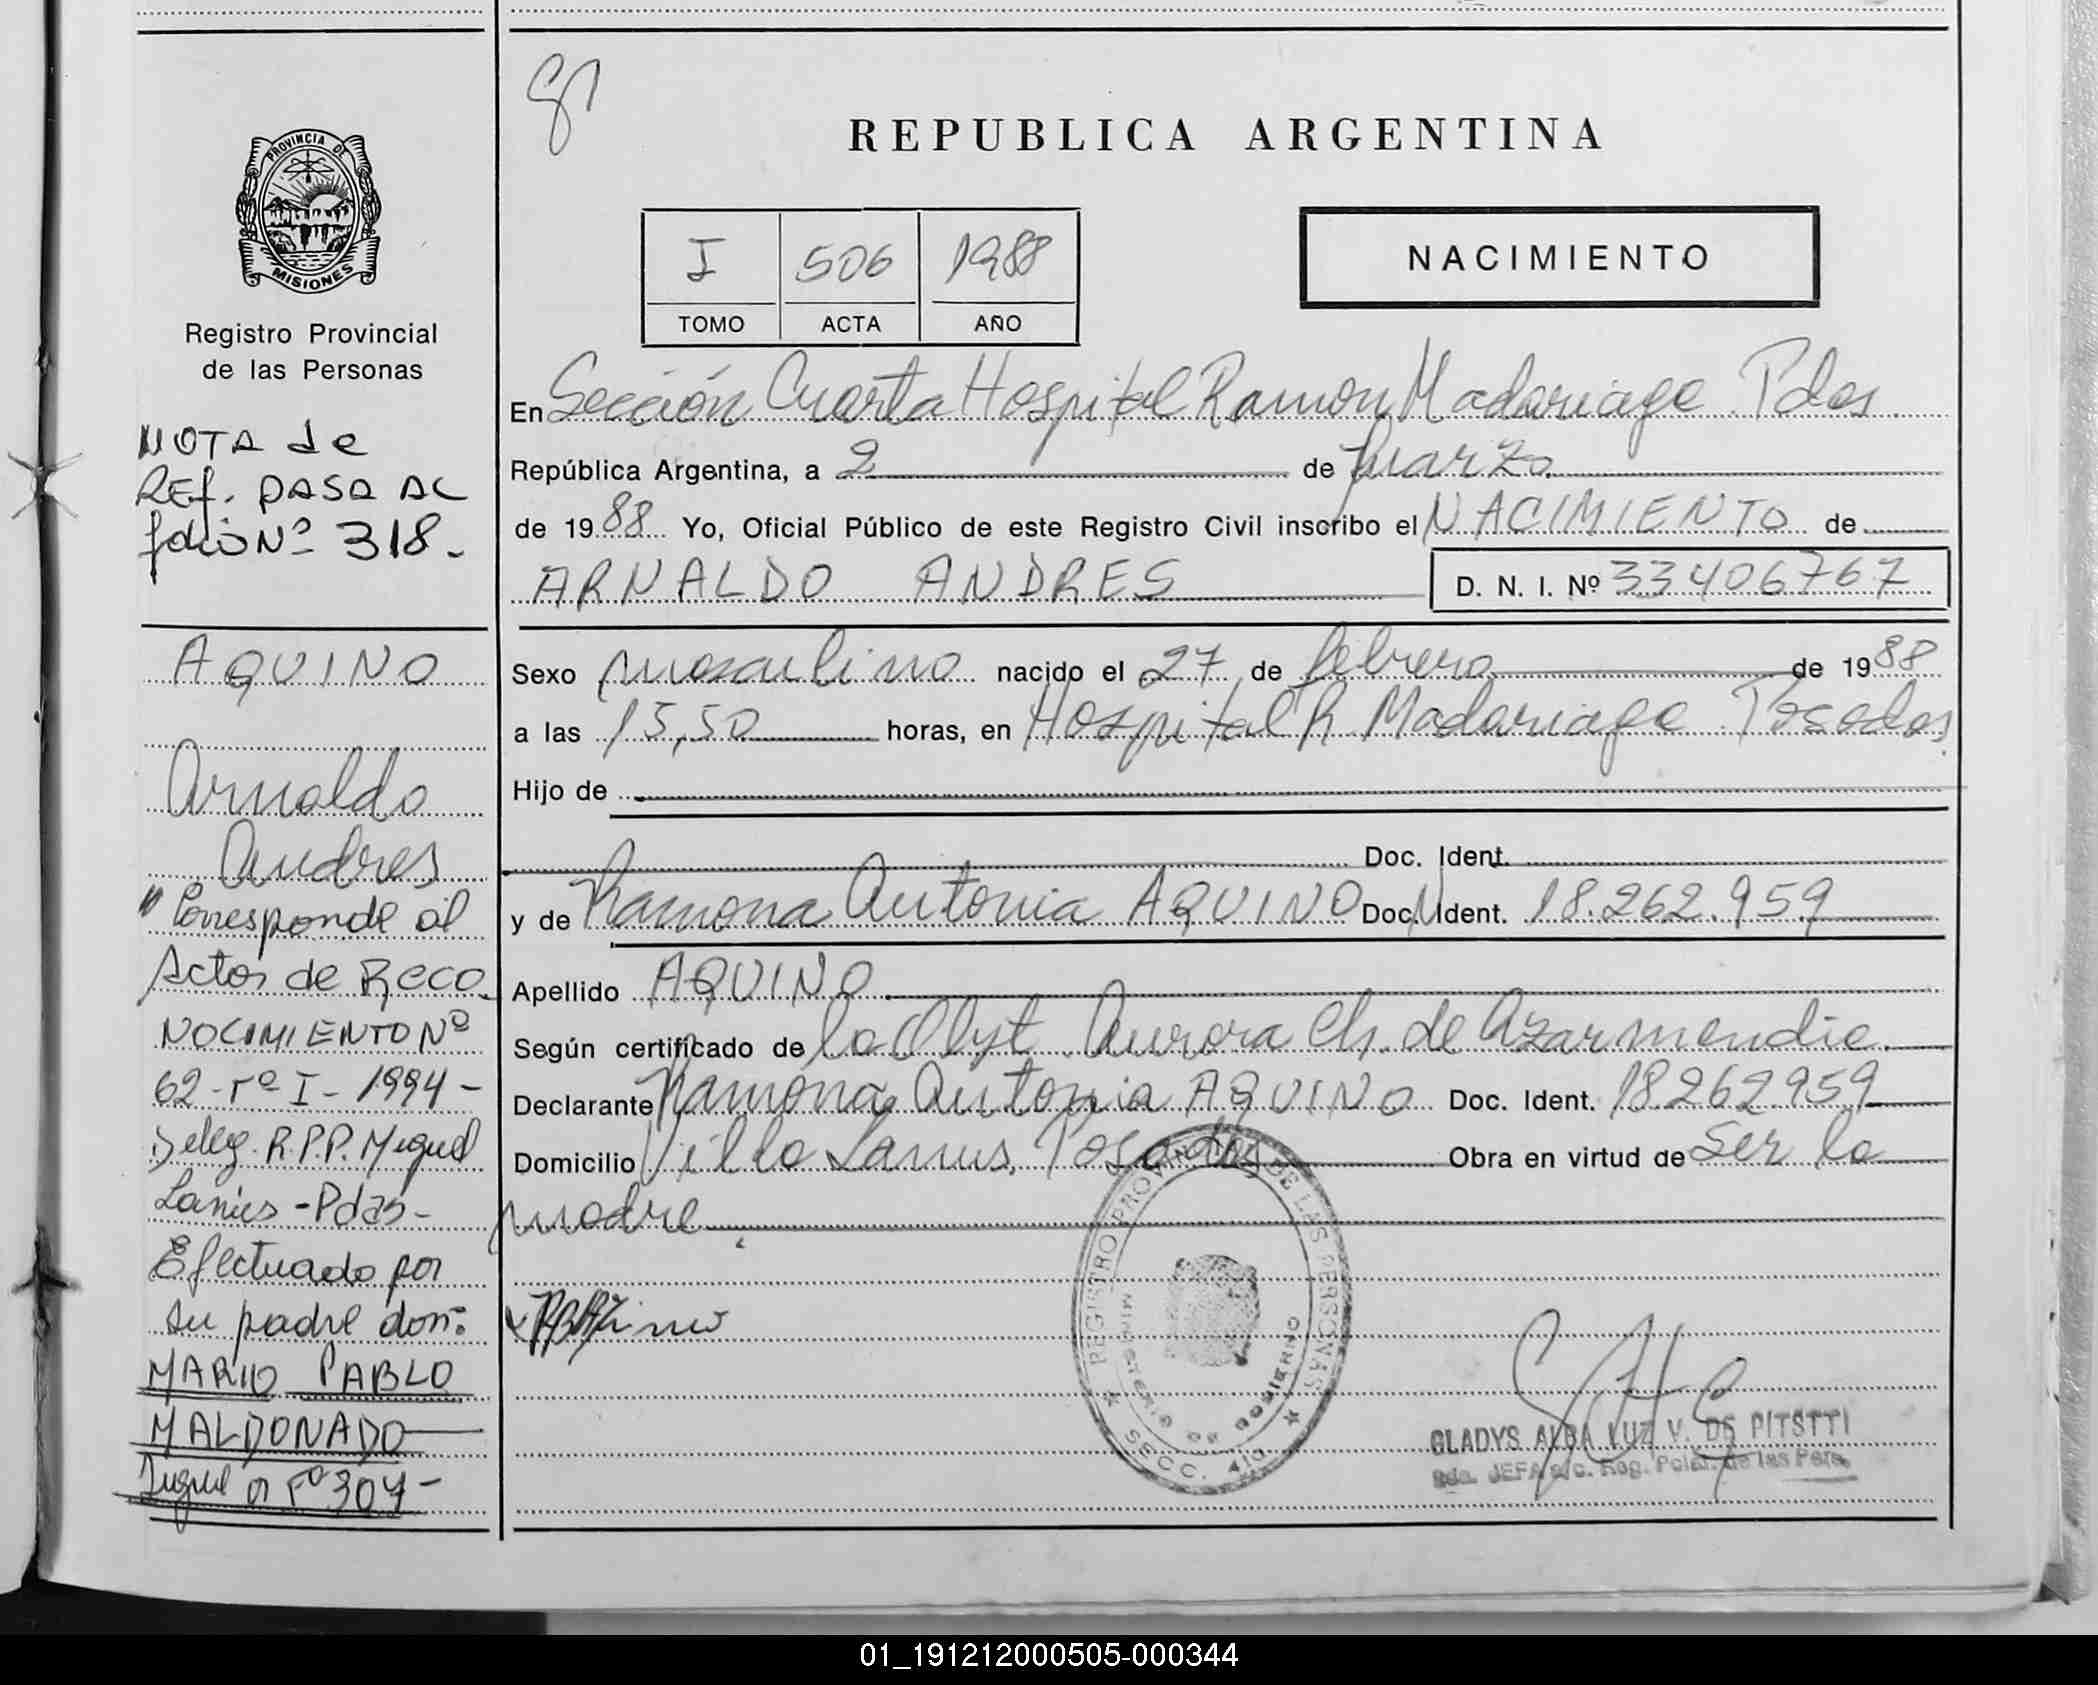 PROVINCIA DE
MISIONES
Registro Provincial
de las Personas
NOTA de
REf. PASA AL
folio Nº 318.
AQUINO
Arnaldo
Andres
"Corresponde al
Actos de Reco
NOCIMIENTO Nº
62-Tº I-1994-
Deleg. R.P.P. Miguel
Lanús-Pdas-
Efectuado por
su padre don:
MARIO PABLO
MALDONADO
Sigue a Fº 304-
REPUBLICA ARGENTINA
I 506 1988
TOMO ACTA AÑO
NACIMIENTO
En Sección Cuarta Hospital Ramon Madariaga Pdas.
República Argentina, a 2 de marzo
de 19 88 Yo, Oficial Público de este Registro Civil inscribo el NACIMIENTO de
ARNALDO ANDRES D. N. I. Nº 33406767
Sexo masculino nacido el 27 de febrero de 19 88
a las 15,50 horas, en Hospital R. Madariaga Posadas
Hijo de
Doc. Ident.
y de Ramona Antonia AQUINO Doc. Ident. 18.262.959
Apellido AQUINO
Según certificado de la Obst. Aurora Ch. de Azarmendia
Declarante Ramona Antonia AQUINO Doc. Ident. 18262959
Domicilio Villa Lanus, Posadas Obra en virtud de Ser la
madre
REGISTRO PROVINCIAL DE LAS PERSONAS
MINISTERIO DE GOBIERNO
SECC. 4ta
GLADYS ALBA LUZ V. DE PITSTTI
JEFA a/c. Reg. de las Pers.
01_191212000505-000344